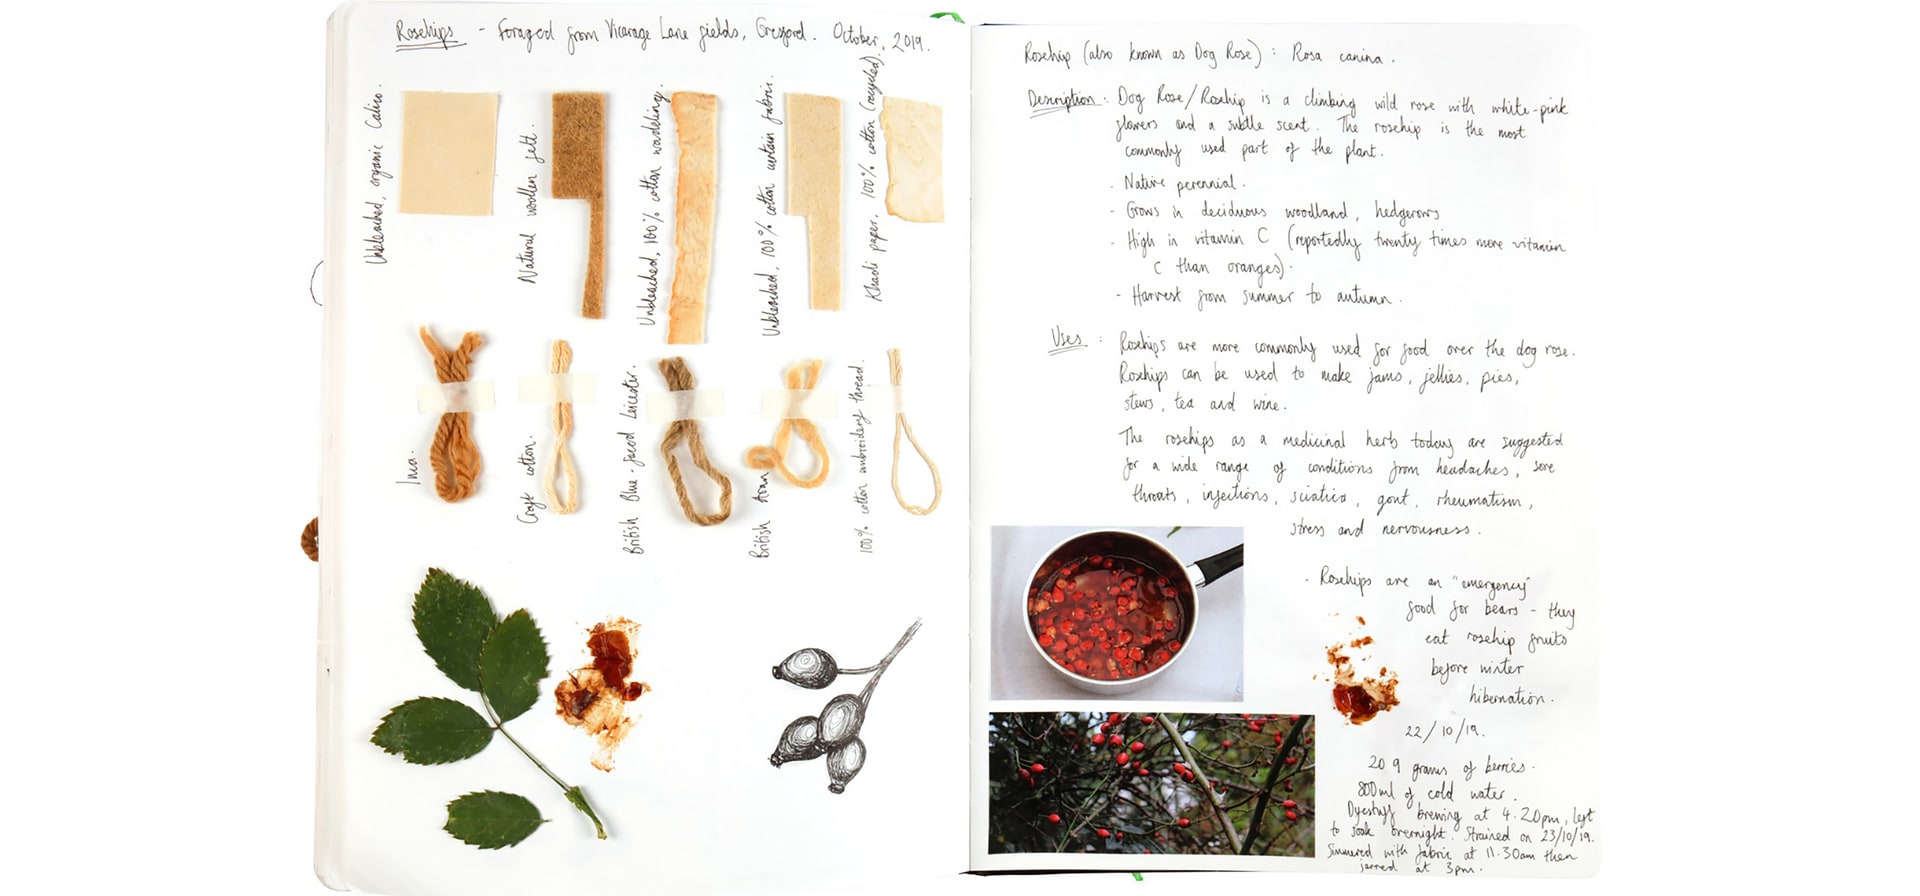 Rosehips - Foraged from Vicarage Lane fields, Gresford. October, 2019.
Unbleached, organic Calico.
Natural woollen felt.
Unbleached, 100% cotton wadding.
Unbleached, 100% cotton curtain fabric.
Khadi paper, 100% cotton (recycled).
Inca.
Craft cotton.
British Blue-faced Leicester.
British Aran
100% cotton embroidery thread.
Rosehip (also known as Dog Rose) : Rosa canina.
Description : Dog Rose/Rosehip is a climbing wild rose with white-pink
flowers and a subtle scent. The rosehip is the most
commonly used part of the plant.
- Native perennial.
- Grows in deciduous woodland, hedgerows
- High in vitamin C (reportedly twenty times more vitamin
C than oranges).
- Harvest from summer to autumn.
Uses : Rosehips are more commonly used for food over the dog rose.
Rosehips can be used to make jams, jellies, pies,
stews, tea and wine.
The rosehips as a medicinal herb today are suggested
for a wide range of conditions from headaches, sore
throats, infections, sciatica, gout, rheumatism,
stress and nervousness.
- Rosehips are an "emergency"
food for bears - they
eat rosehip fruits
before winter
hibernation.
22/10/19.
209 grams of berries.
800ml of cold water.
Dyestuff brewing at 4.20pm, left
to soak overnight. Strained on 23/10/19.
Simmered with fabric at 11.30am then
jarred at 3pm.